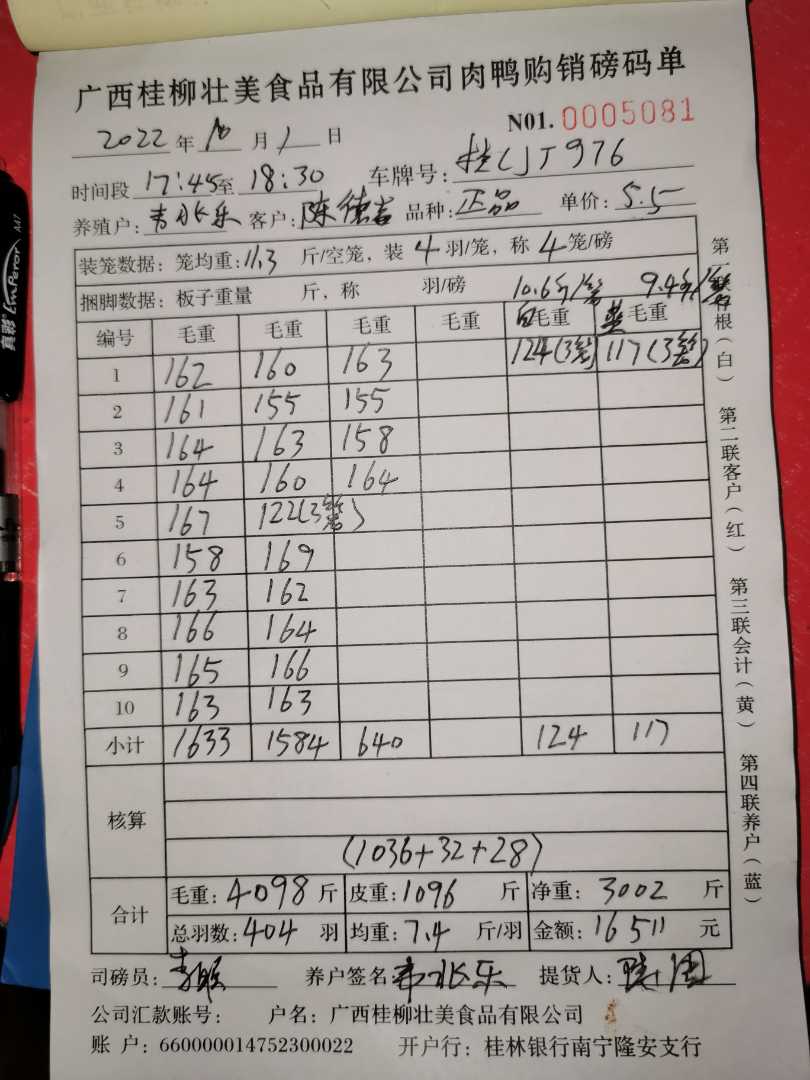 广西桂柳壮美食品有限公司肉鸭购销磅码单
N01. 0005081
2022 年 10 月 1 日
时间段 17:45 至 18:30 车牌号: 桂CJT976
养殖户: 韦兆乐 客户: 陈德吉 品种: 正品 单价: 5.5
装笼数据: 笼均重: 11.3 斤/空笼, 装 4 羽/笼, 称 4 笼/磅
捆脚数据: 板子重量 斤, 称 羽/磅 10.6斤/笼 9.4斤/笼
编号 毛重 毛重 毛重 毛重 白毛重 黄毛重
1 162 160 163 124(3笼) 117(3笼)
2 161 155 155
3 164 163 158
4 164 160 164
5 167 122(3笼)
6 158 169
7 163 162
8 166 164
9 165 166
10 163 163
小计 1633 1584 640 124 117
核算
(1036+32+28)
合计
毛重: 4098 斤 皮重: 1096 斤 净重: 3002 斤
总羽数: 404 羽 均重: 7.4 斤/羽 金额: 16511 元
司磅员: 养户签名: 韦兆乐 提货人:
公司汇款账号: 户名: 广西桂柳壮美食品有限公司
账 户: 660000014752300022 开户行: 桂林银行南宁隆安支行
根(白) 第二联客户(红) 第三联会计(黄) 第四联养户(蓝)
Emperor